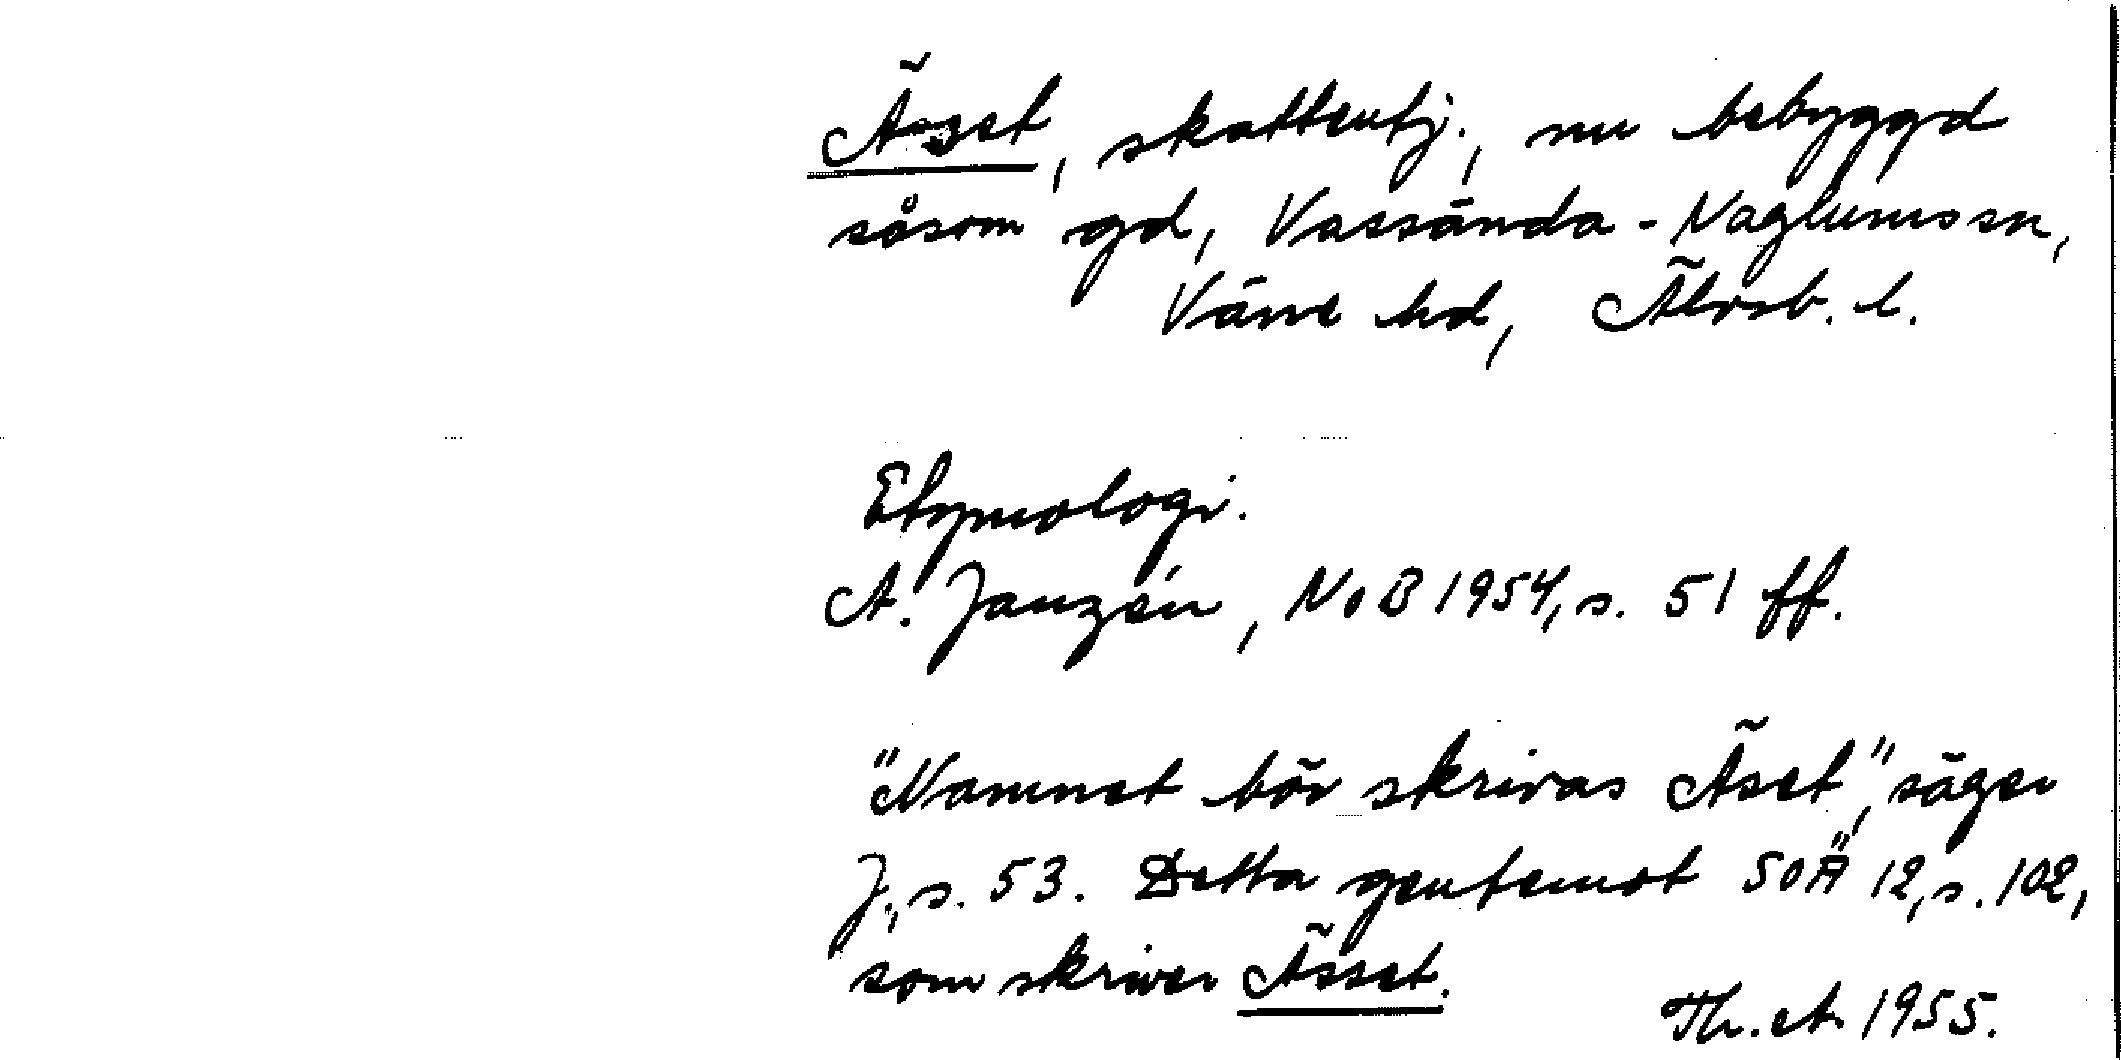 Äset, skatteutj., nu bebyggd
såsom gd, Vassända-Naglums sn,
Väne hd, Älvsb. l.
Etymologi.
A. Janzén, NoB 1954, s. 51 ff.
"Namnet bör skrivas Äset", säger
J., s. 53. Detta gentemot SOÄ 12, s. 102,
som skriver Ässet.
Th. A. 1955.